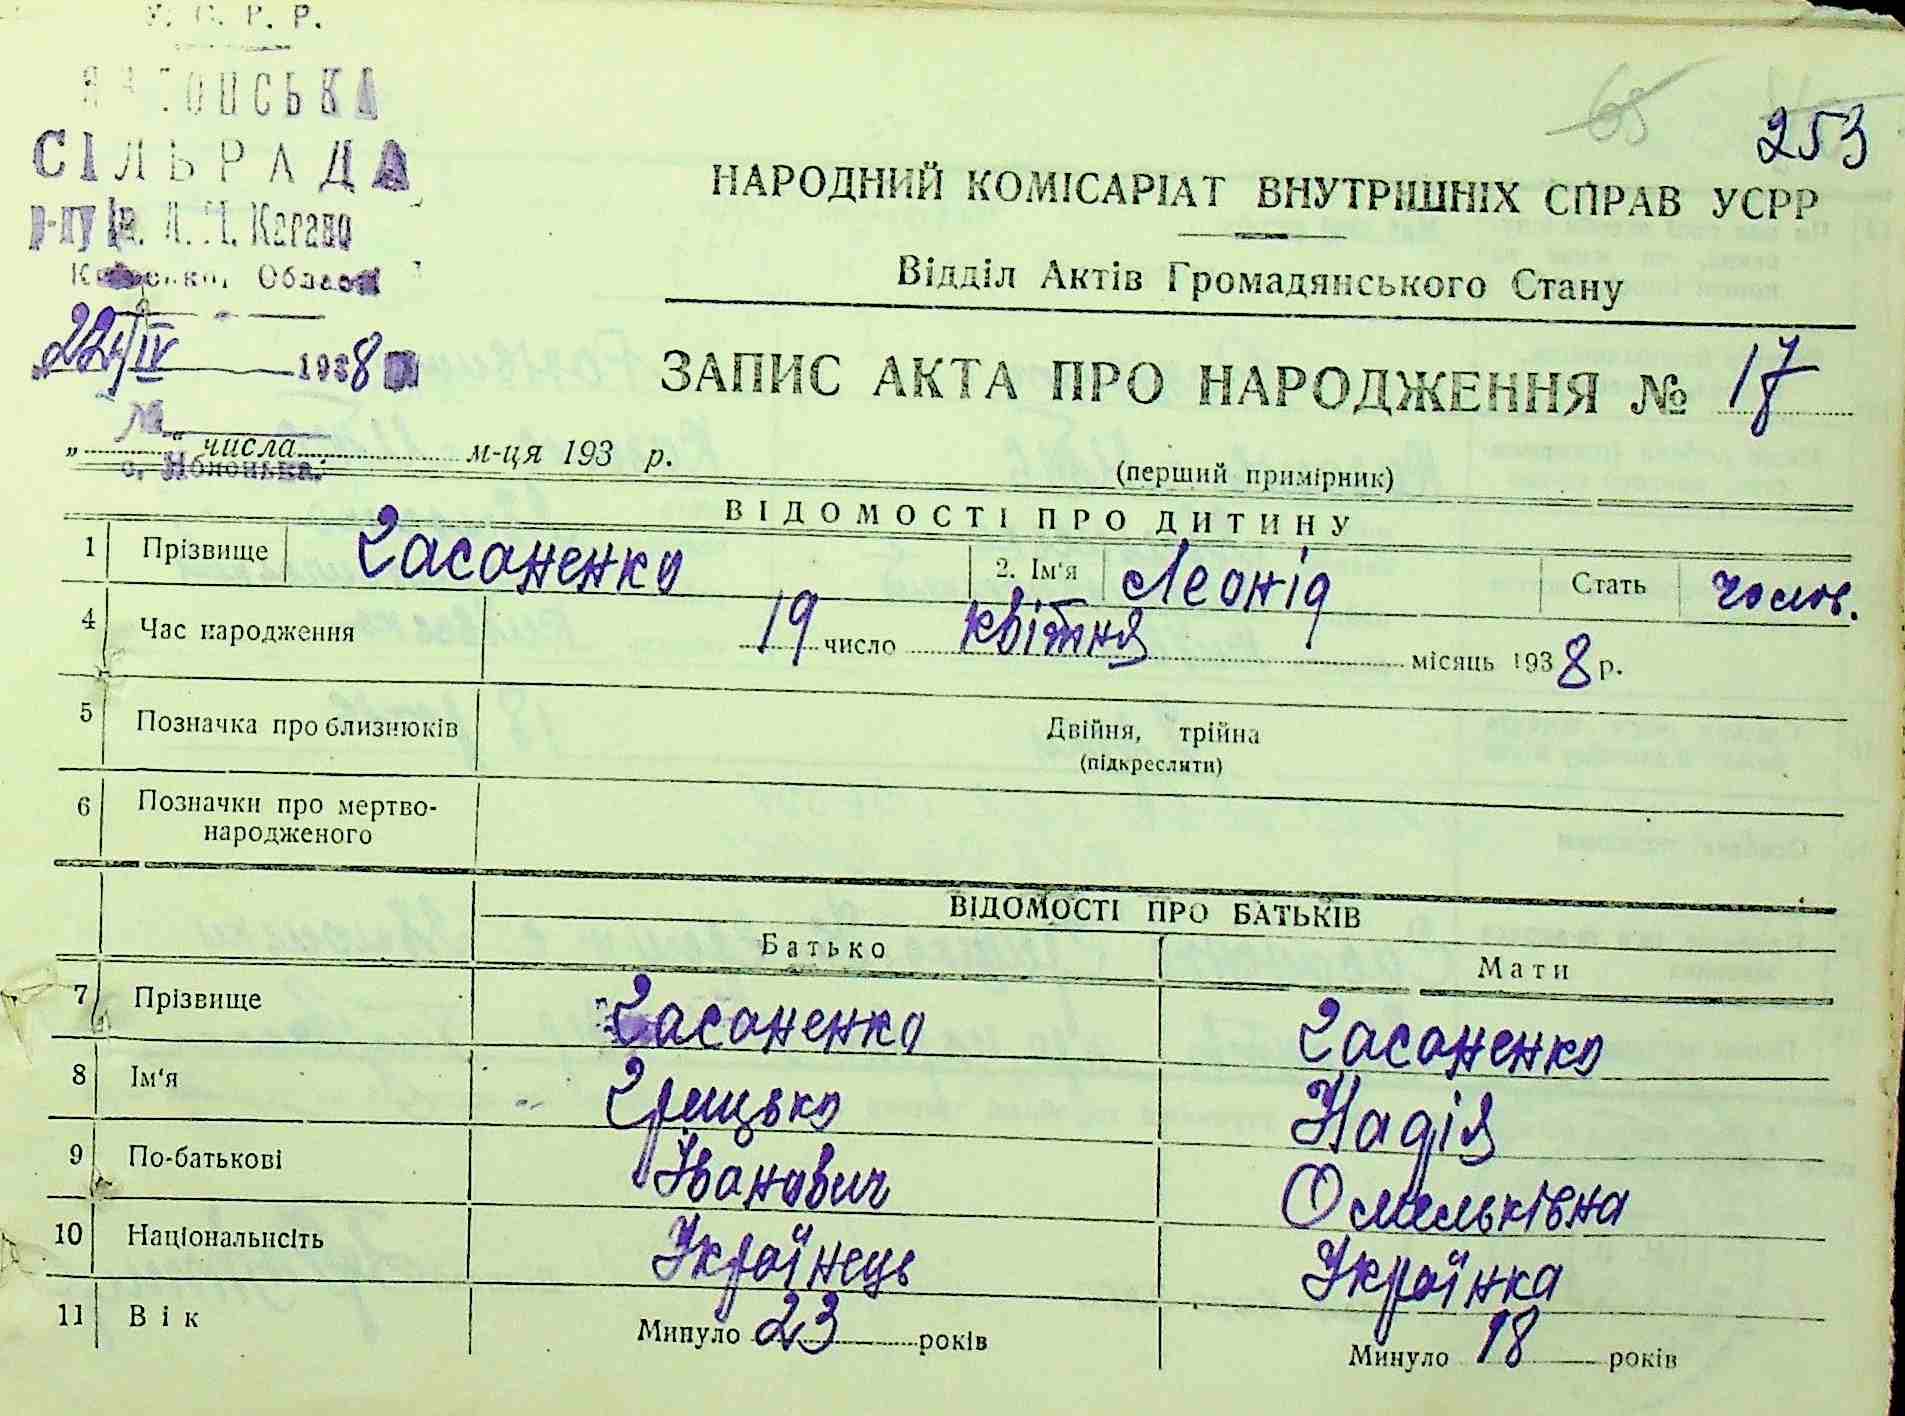 У. С. Р. Р.
СІЛЬРАДА
р-ну ім. Л. М. Кагано
Області
253
65
НАРОДНИЙ КОМІСАРІАТ ВНУТРІШНІХ СПРАВ УСРР
Відділ Актів Громадянського Стану
22/IV 1938
ЗАПИС АКТА ПРО НАРОДЖЕННЯ № 17
№
„ “ числа м-ця 193 р.
с. Яблонька.
(перший примірник)
ВІДОМОСТІ ПРО ДИТИНУ
1 Прізвище Гасаненко 2. Ім'я Леонід Стать чолов.
4 Час народження 19 число квітня місяць 1938 р.
5 Позначка про близнюків Двійня, трійна
(підкреслити)
6 Позначки про мертво-
народженого
ВІДОМОСТІ ПРО БАТЬКІВ
Батько Мати
7 Прізвище Гасаненко Гасаненко
8 Ім'я Грицько Надія
9 По-батькові Іванович Омельківна
10 Національність Українець Українка
11 Вік Минуло 23 років Минуло 18 років